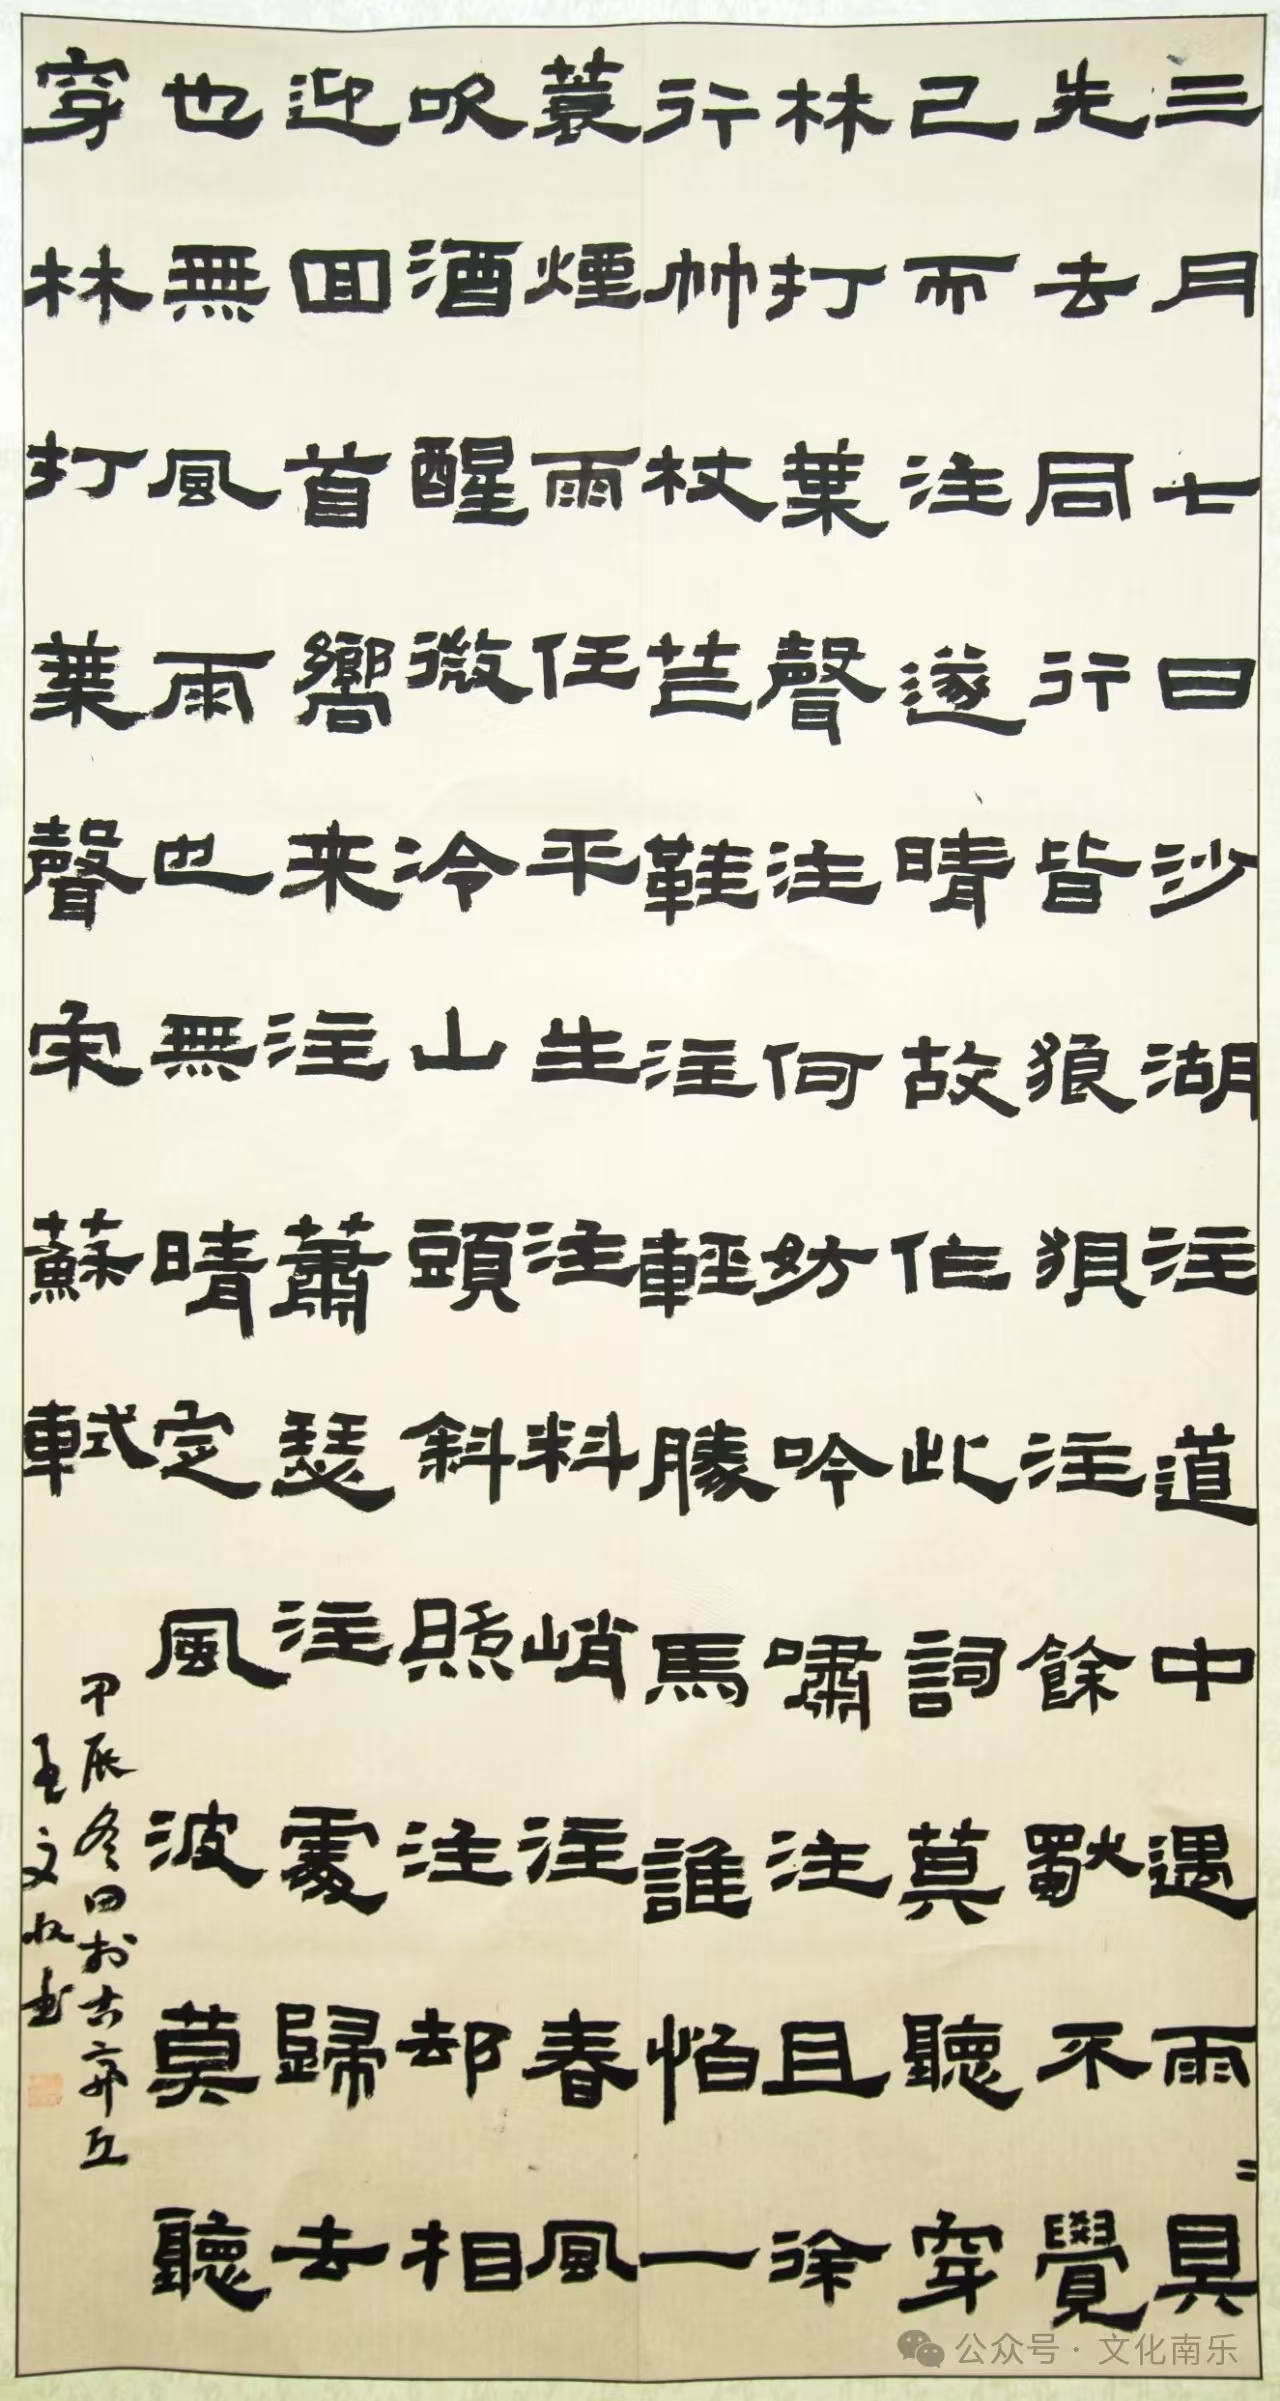 三月七日沙湖注道中遇雨〻具
先去同行皆狼狽注餘獨不覺
已而注遂晴故作此詞莫聽穿
林打葉聲注何妨吟嘯注且徐
行竹杖芒鞋注輕勝馬誰怕一
蓑煙雨任平生注料峭注春風
吹酒醒微冷山頭斜照注却相
迎回首嚮来注蕭瑟注處歸去
也無風雨也無晴定風波莫聽
穿林打葉聲宋蘇軾
甲辰冬日於古帝丘
文書
公众号·文化南乐